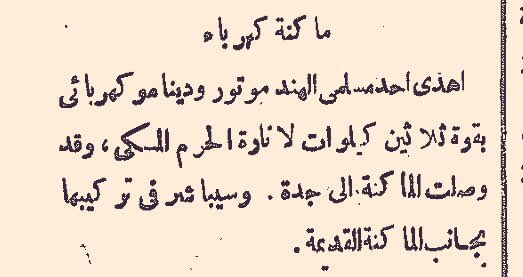 ماكنة كهرباء
اهدى احد مسلمى الهند موتور ودينامو كهربائى
بقوة ثلاثين كيلوات لانارة الحرم المسكى، وقد
وصلت الماكنة الى جدة. وسيباشر فى تركيبها
بجانب الماكنة القديمة.